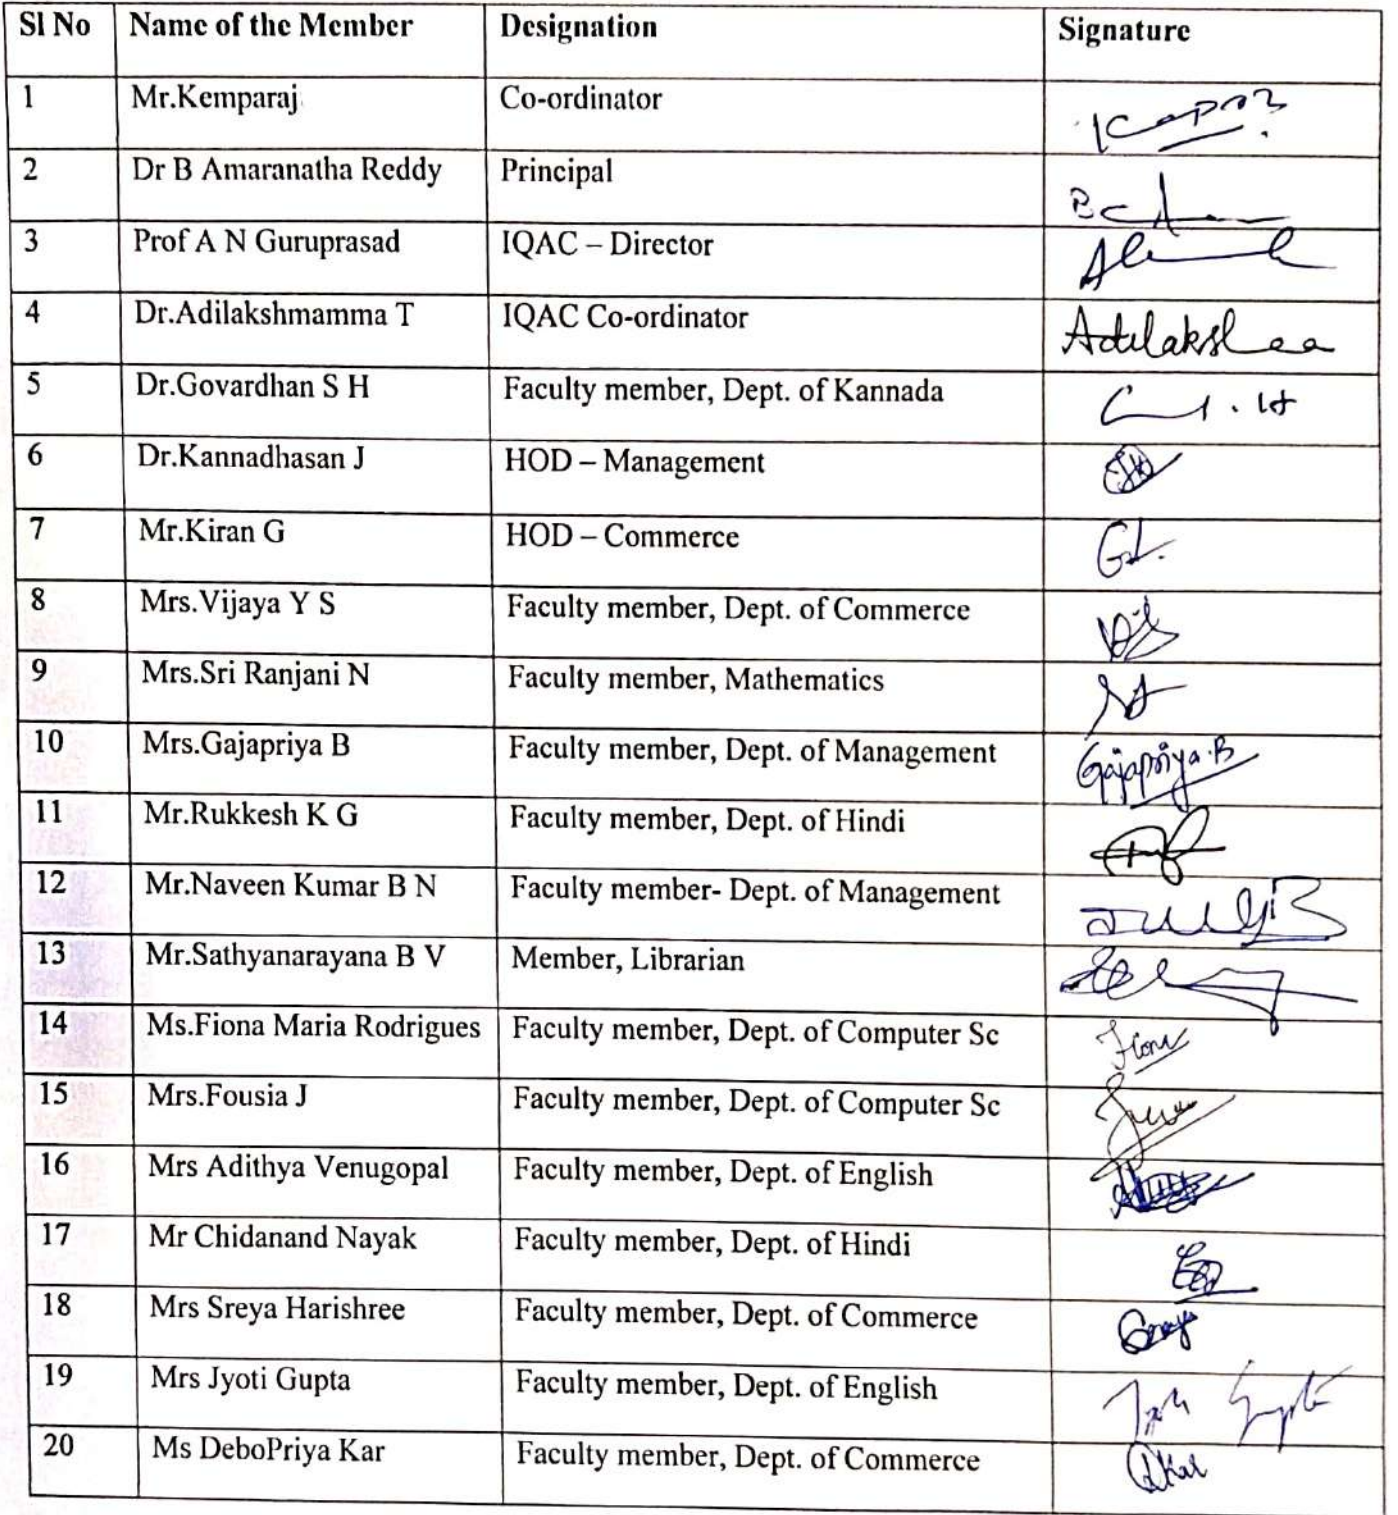 Sl No Name of the Member Designation Signature
1 Mr.Kemparaj Co-ordinator
2 Dr B Amaranatha Reddy Principal
3 Prof A N Guruprasad IQAC – Director
4 Dr.Adilakshmamma T IQAC Co-ordinator
5 Dr.Govardhan S H Faculty member, Dept. of Kannada
6 Dr.Kannadhasan J HOD – Management
7 Mr.Kiran G HOD – Commerce
8 Mrs.Vijaya Y S Faculty member, Dept. of Commerce
9 Mrs.Sri Ranjani N Faculty member, Mathematics
10 Mrs.Gajapriya B Faculty member, Dept. of Management Gajapriya.B
11 Mr.Rukkesh K G Faculty member, Dept. of Hindi
12 Mr.Naveen Kumar B N Faculty member- Dept. of Management
13 Mr.Sathyanarayana B V Member, Librarian
14 Ms.Fiona Maria Rodrigues Faculty member, Dept. of Computer Sc
15 Mrs.Fousia J Faculty member, Dept. of Computer Sc
16 Mrs Adithya Venugopal Faculty member, Dept. of English
17 Mr Chidanand Nayak Faculty member, Dept. of Hindi
18 Mrs Sreya Harishree Faculty member, Dept. of Commerce
19 Mrs Jyoti Gupta Faculty member, Dept. of English
20 Ms DeboPriya Kar Faculty member, Dept. of Commerce